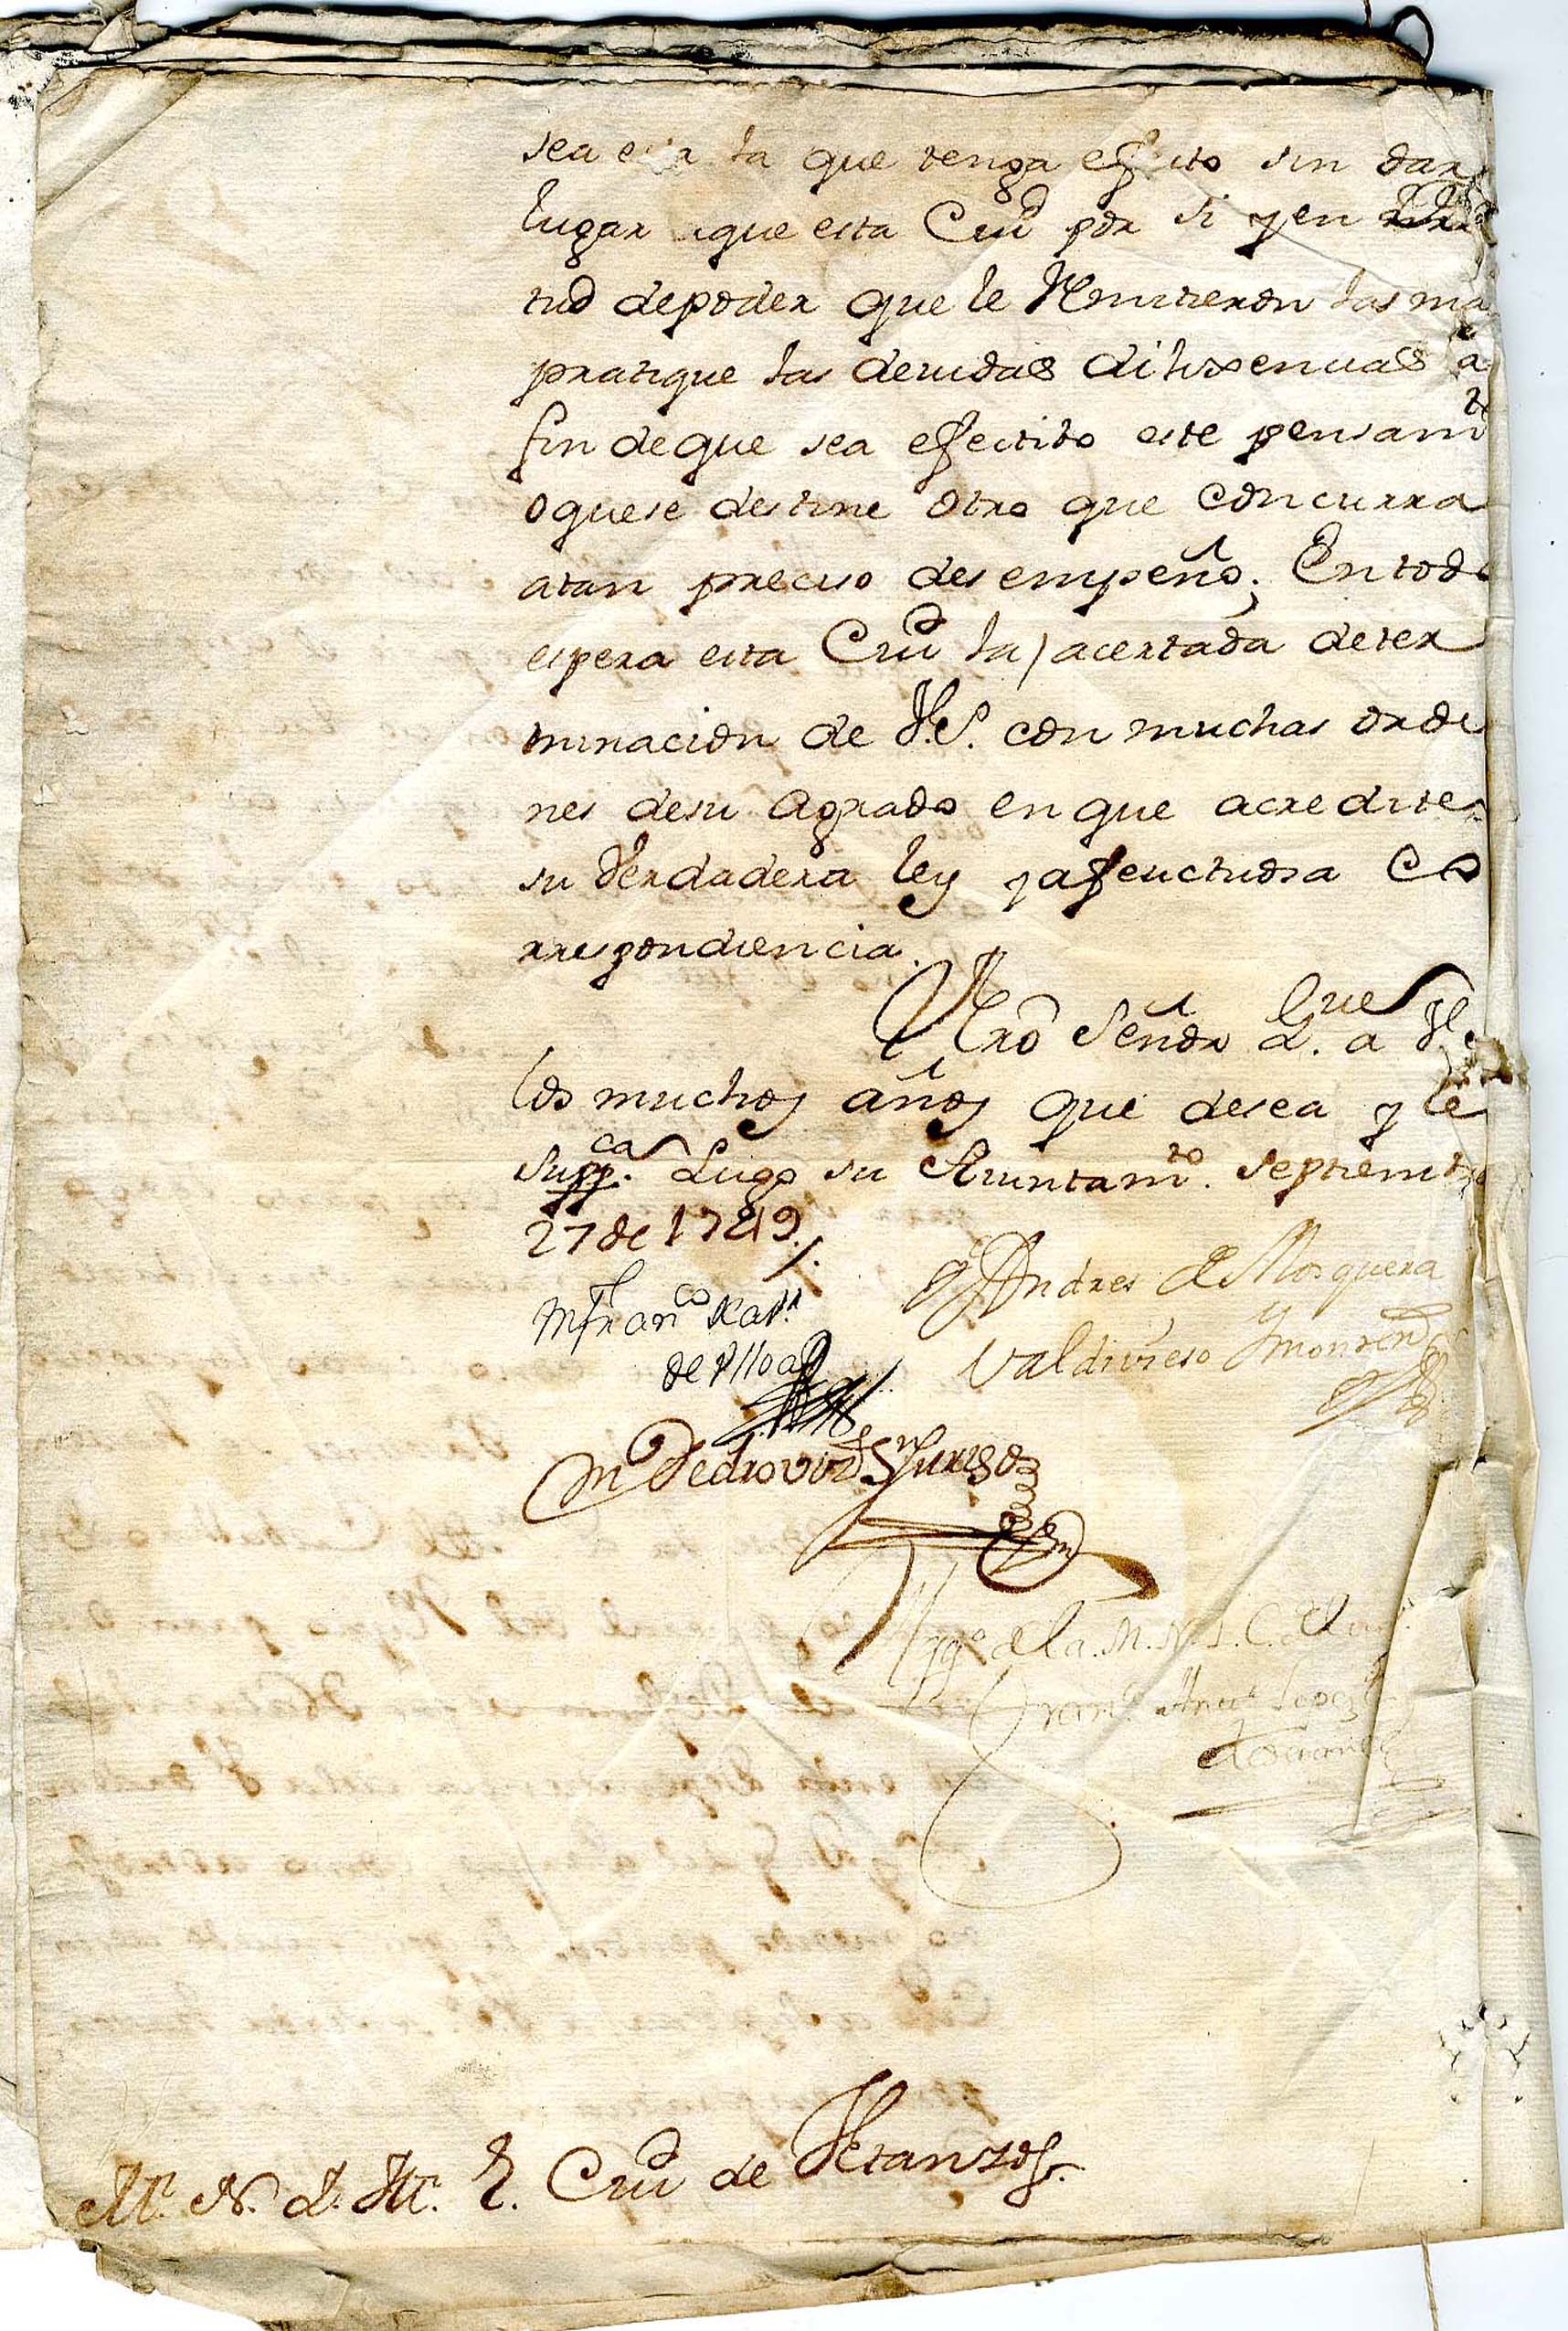 sea esta la que tenga efecto sin dar
lugar aque esta Ciud por si y en vir
tud depoder que le Remitieron las ma
pratique las devidas dilixencias a
fin deque sea efectibo este pensamto
oquese destine otro que concurra
atan preciso desempeño; En todo
espera esta Ciud la acertada deter
minacion de V.S. con muchas orde
nes desu Agrado en que acredite
su Verdadera ley y afeuctuosa Co
rrespondiencia.
Nro Señor Gue a V.S.
los muchos años que desea y le
Suppca. Lugo su Aiuntamto. Septiembre
27 de 1749.
Mn Franco Xavr.
de Ulloa
Dn Andres de Mosquera
Valdivieso
Dn Pedro
de la M. N. L. C. de Lugo
Franco Anto Lopez
M. N. L. M. L. Ciud de Vetanzos.